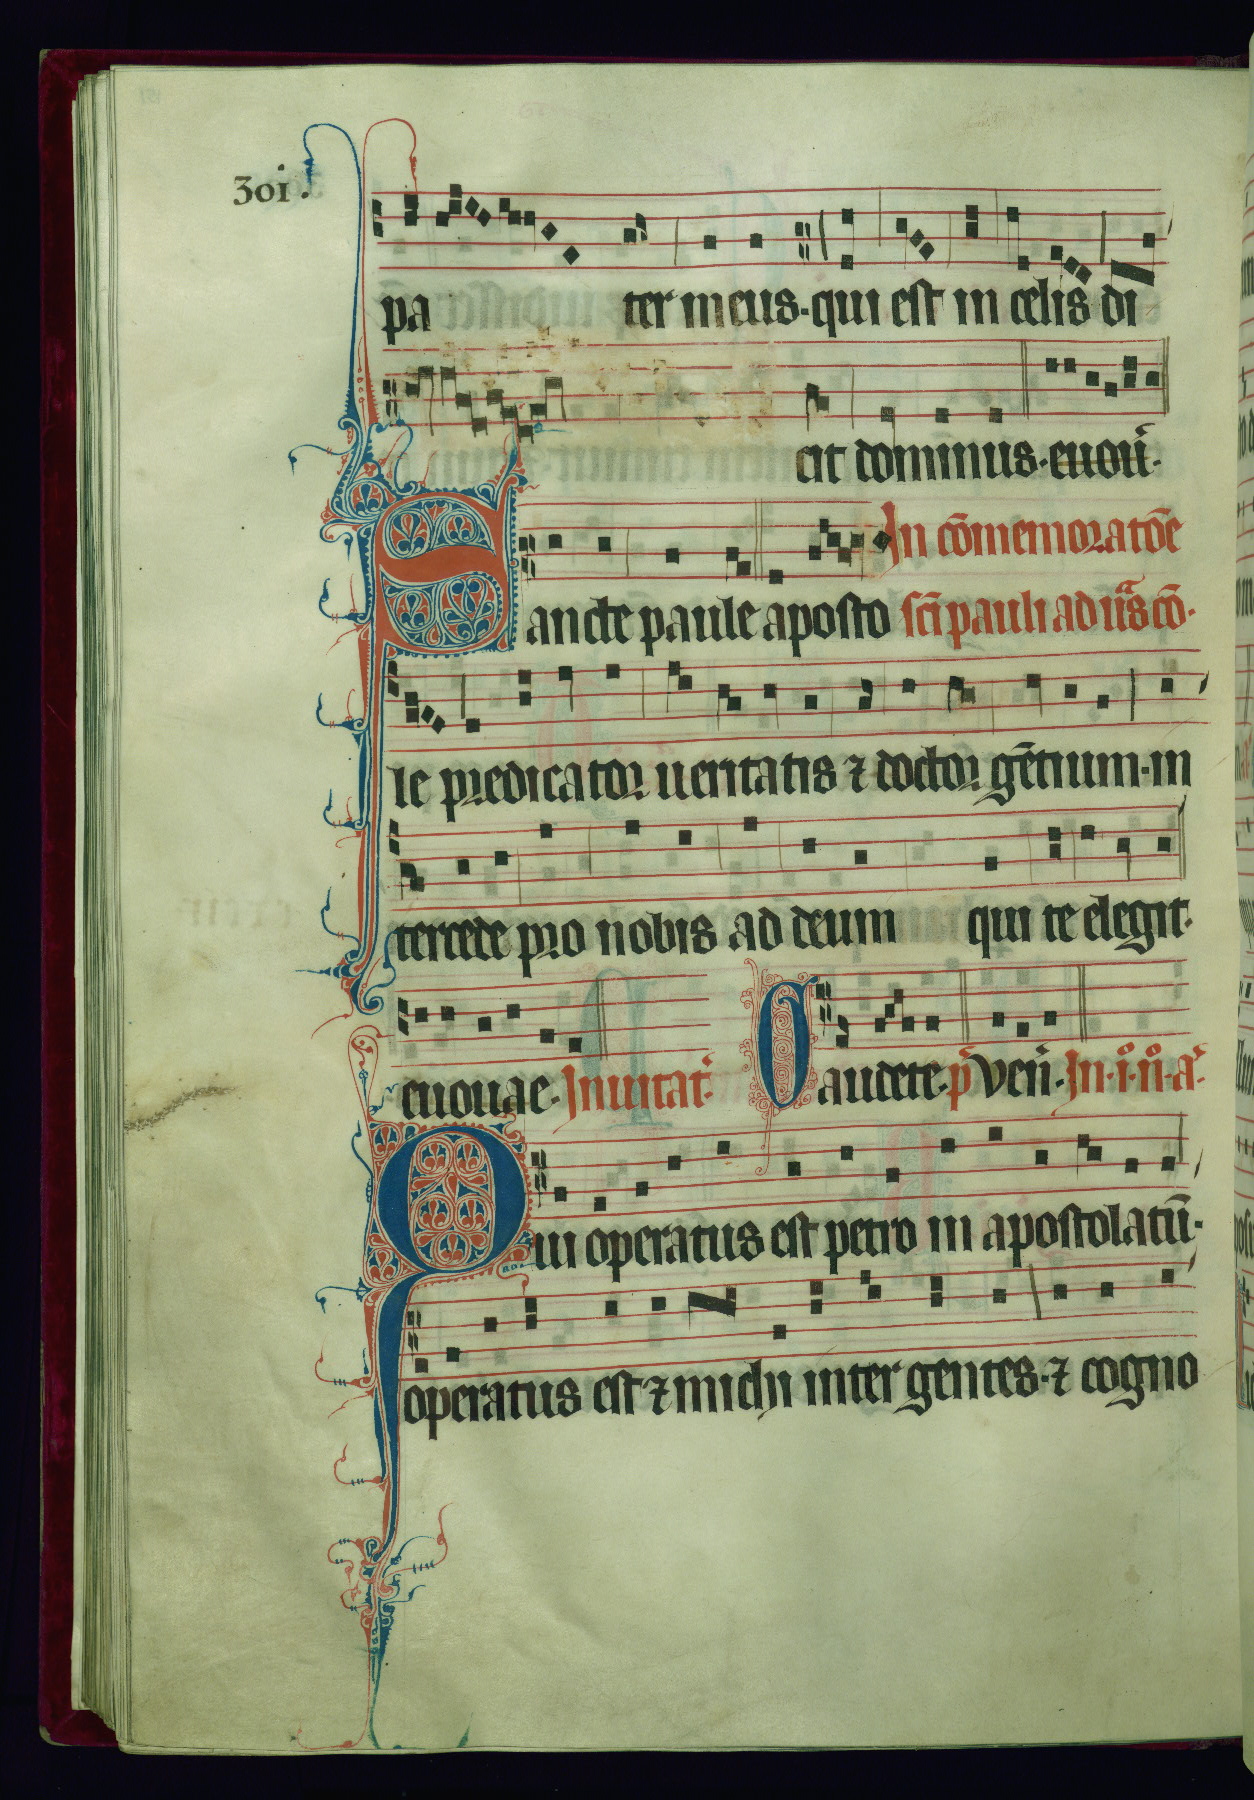 301.
pa ter meus. qui est in celis di
cit dominus. euoũ.
In cõmemoratõe
Sancte paule aposto sc̃i pauli ad ũas cõ.
le predicator ueritatis ⁊ doctor gẽtium. in
tercede pro nobis ad deum qui te elegit.
euouae. Inuitat̃. Gaudete. p̃ Veñ. In. i.º n.º a.
Qui operatus est petro in apostolatũ.
operatus est ⁊ michi inter gentes. ⁊ cogno